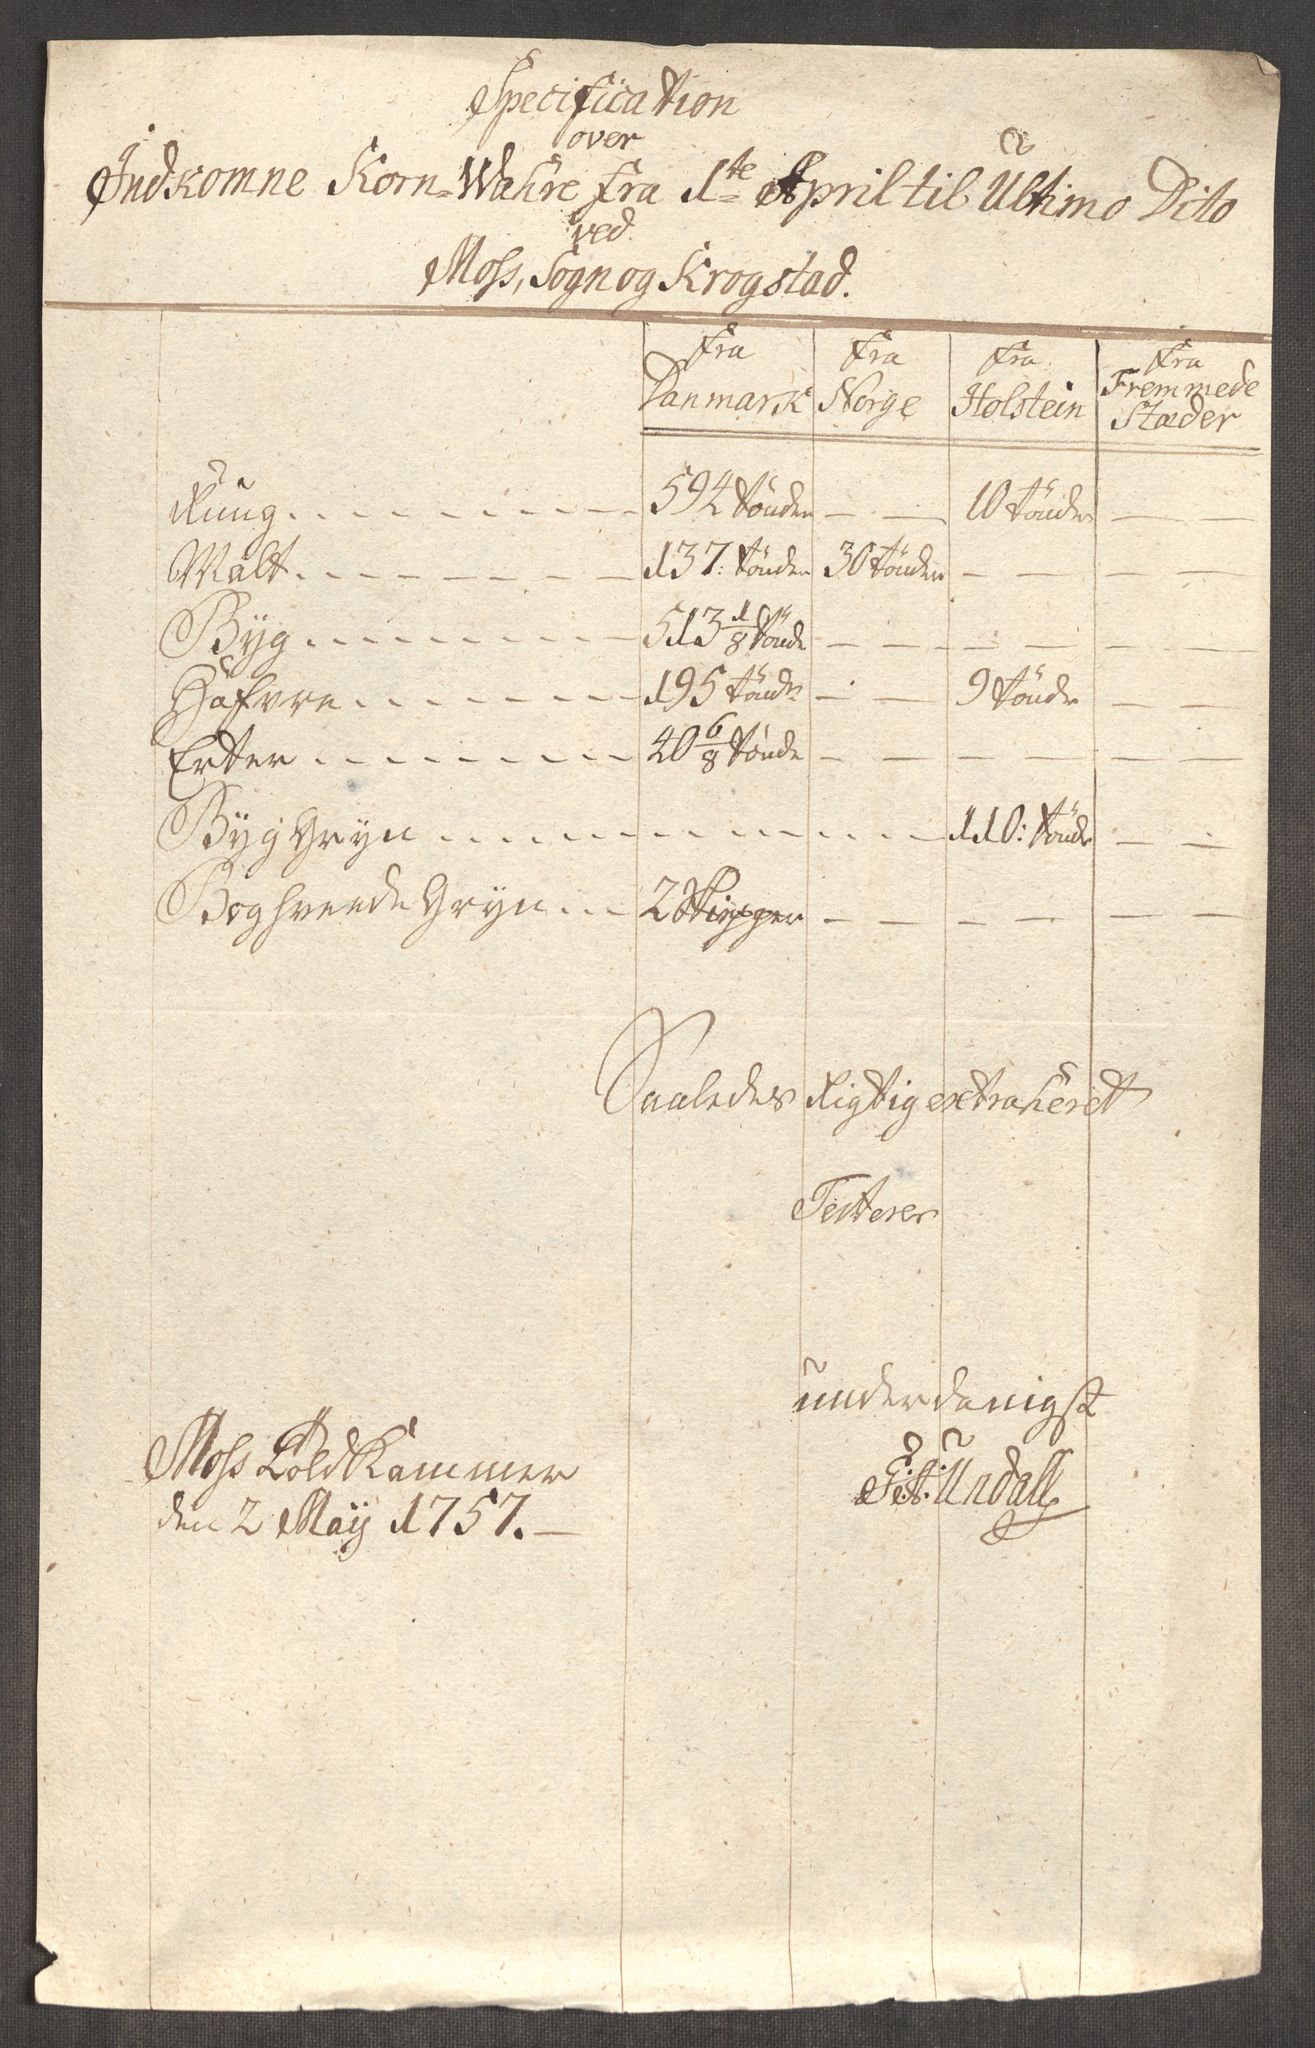 Specification
over
Indkomne Korn-Wahre fra 1te April til Ultimo Dito
ved
Moss, Sogn og Krogstad.
fra Danmark fra Norge fra Holstein fra Fremmede Stæder
Rüug 594 tönder — — 10 tönder — —
Malt 137: tönder 30 tönder — — — —
Byg 513 1/8 tönde — — — — — —
Hafvre 195 tönde — — 9 tönder — —
Erter 40 6/8 tönde — — — — — —
Byg Gryn 110: tönder — —
Boghveede Gryn 2 Skiepper — — — — — —
Saaledes Rigtig extraheret
Testerer
underdanigst
Moss Told Kammer
den 2 Maÿ 1757.
Undall